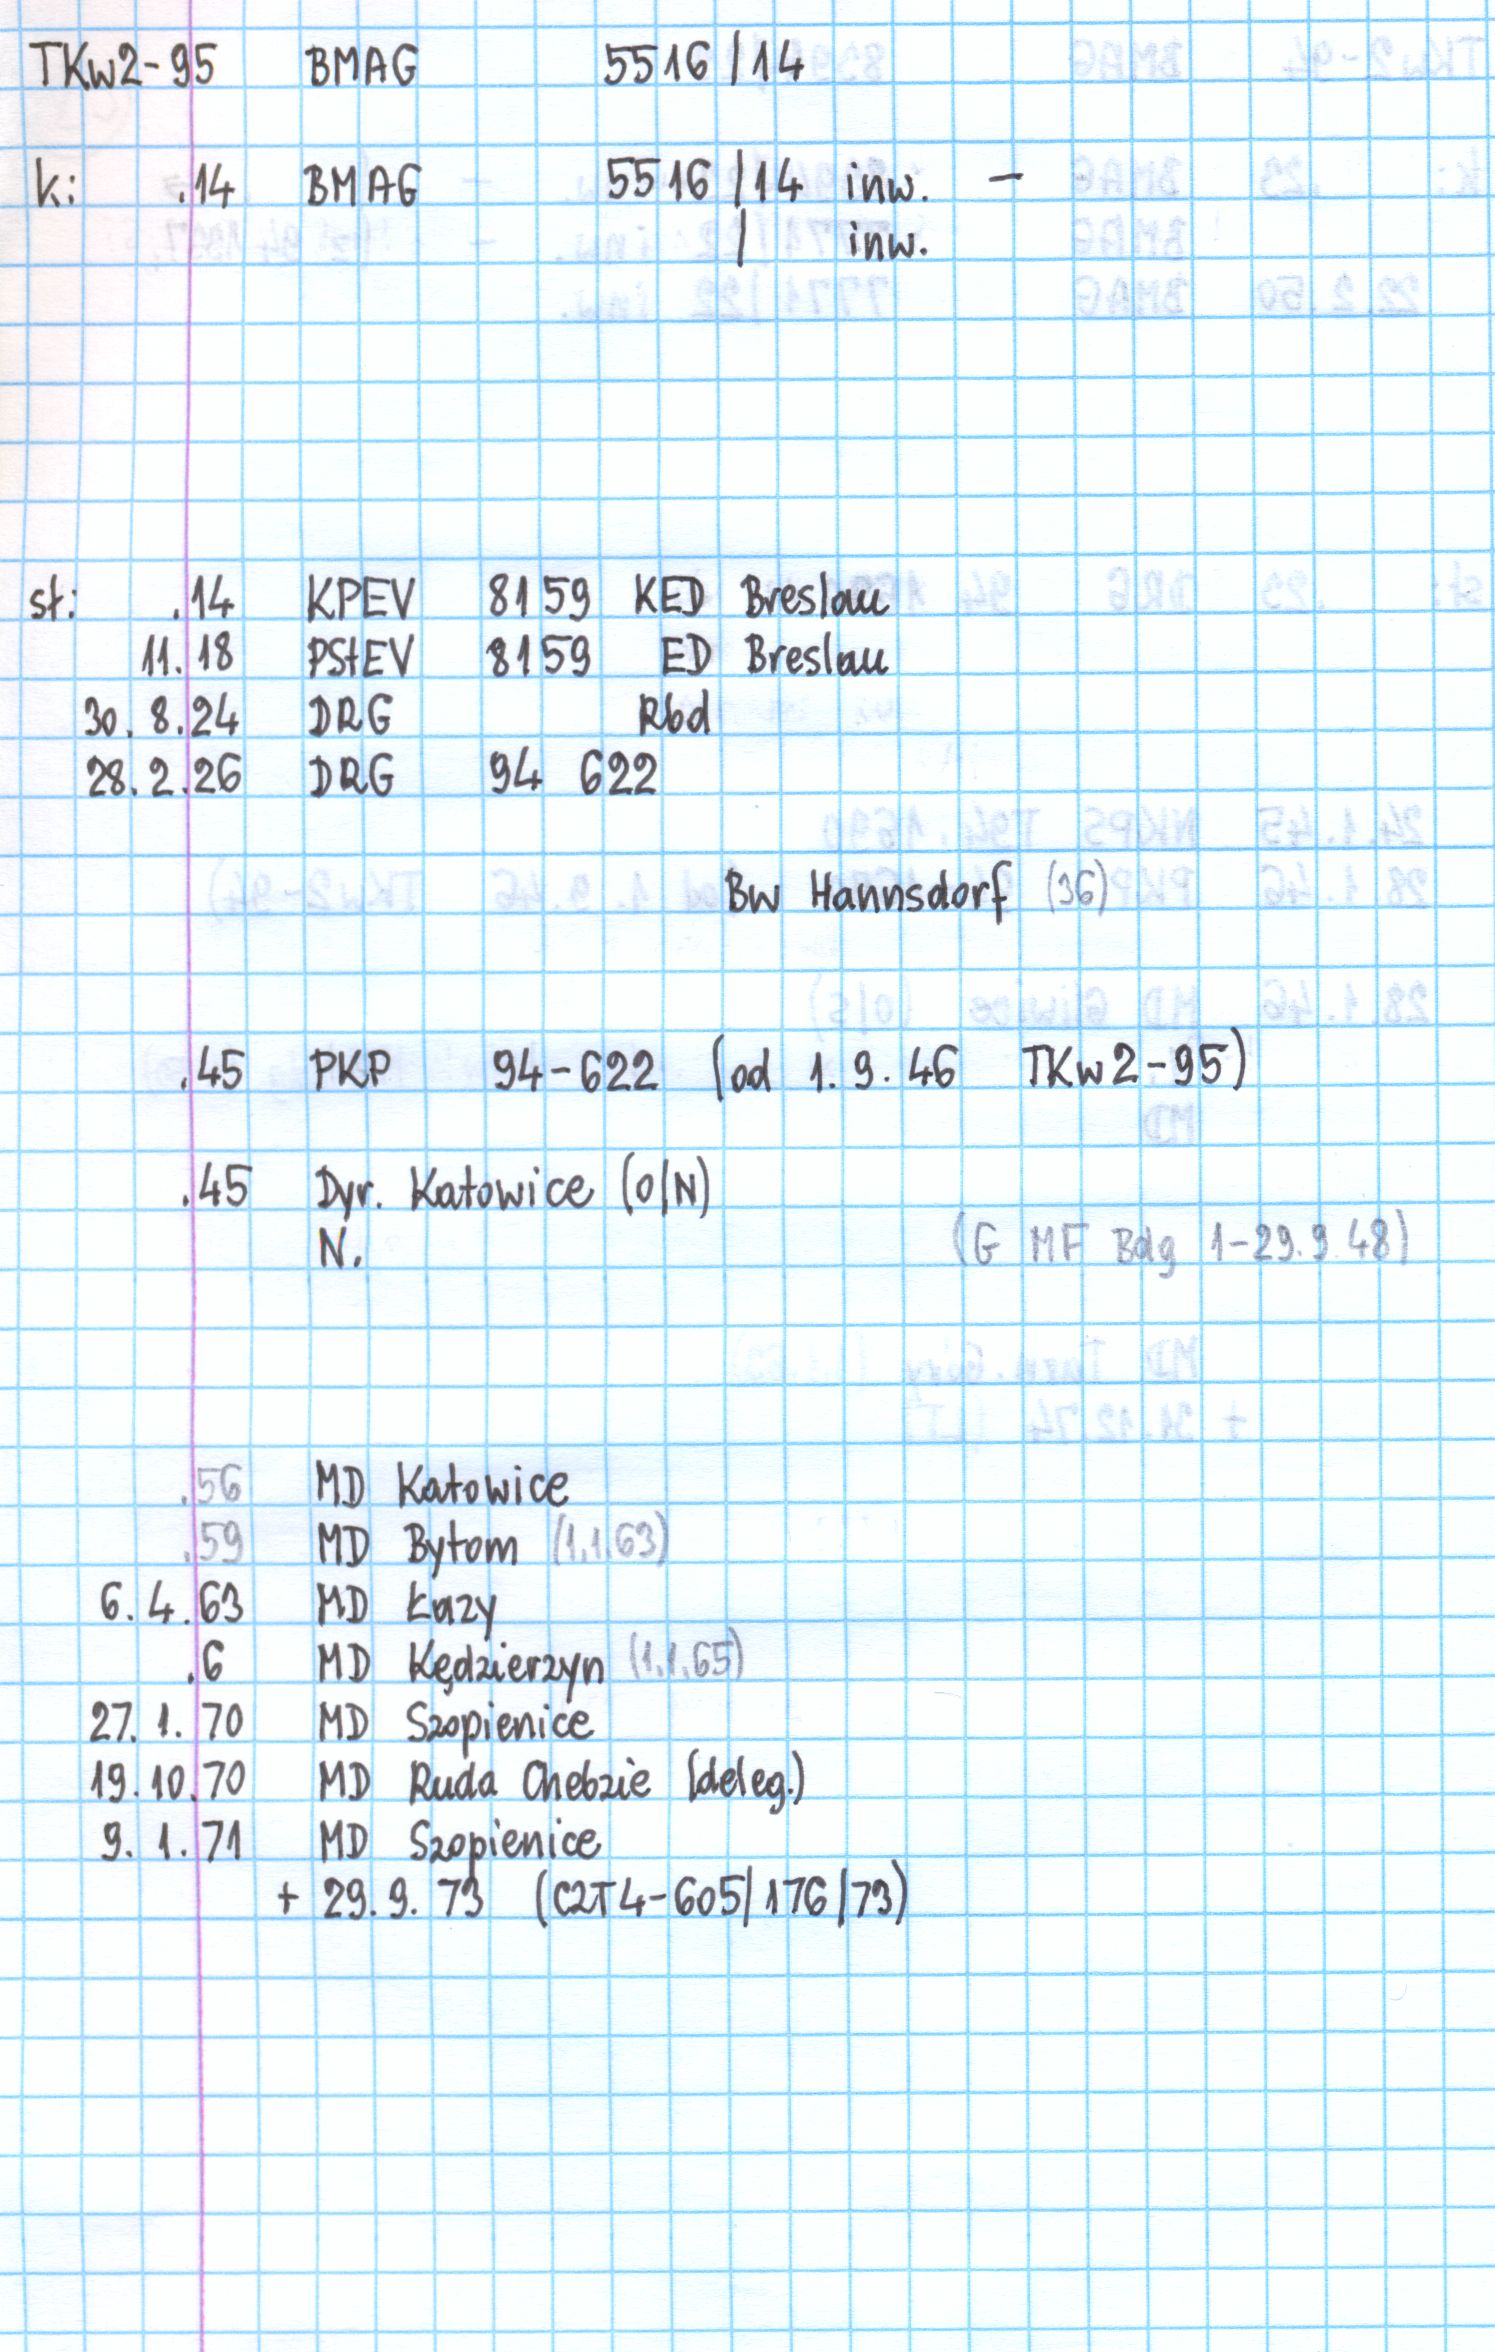 TKw2-95 BMAG 5516/14
k: .14 BMAG 5516/14 inw. -
/ inw.
st: .14 KPEV 8159 KED Breslau
11.18 PStEV 8159 ED Breslau
30.8.24 DRG Rbd
28.2.26 DRG 94 622
Bw Hannsdorf (36)
.45 PKP 94-622 (od 1.9.46 TKw2-95)
.45 Dyr. Katowice (O/N)
N. (G MF Bdg 1-29.9.48)
.56 MD Katowice
.59 MD Bytom (1.1.63)
6.4.63 MD Łazy
.6 MD Kędzierzyn (1.1.65)
27.1.70 MD Szopienice
19.10.70 MD Ruda Chebzie (deleg.)
9.1.71 MD Szopienice
+ 29.9.73 (C2T4-605/176/73)